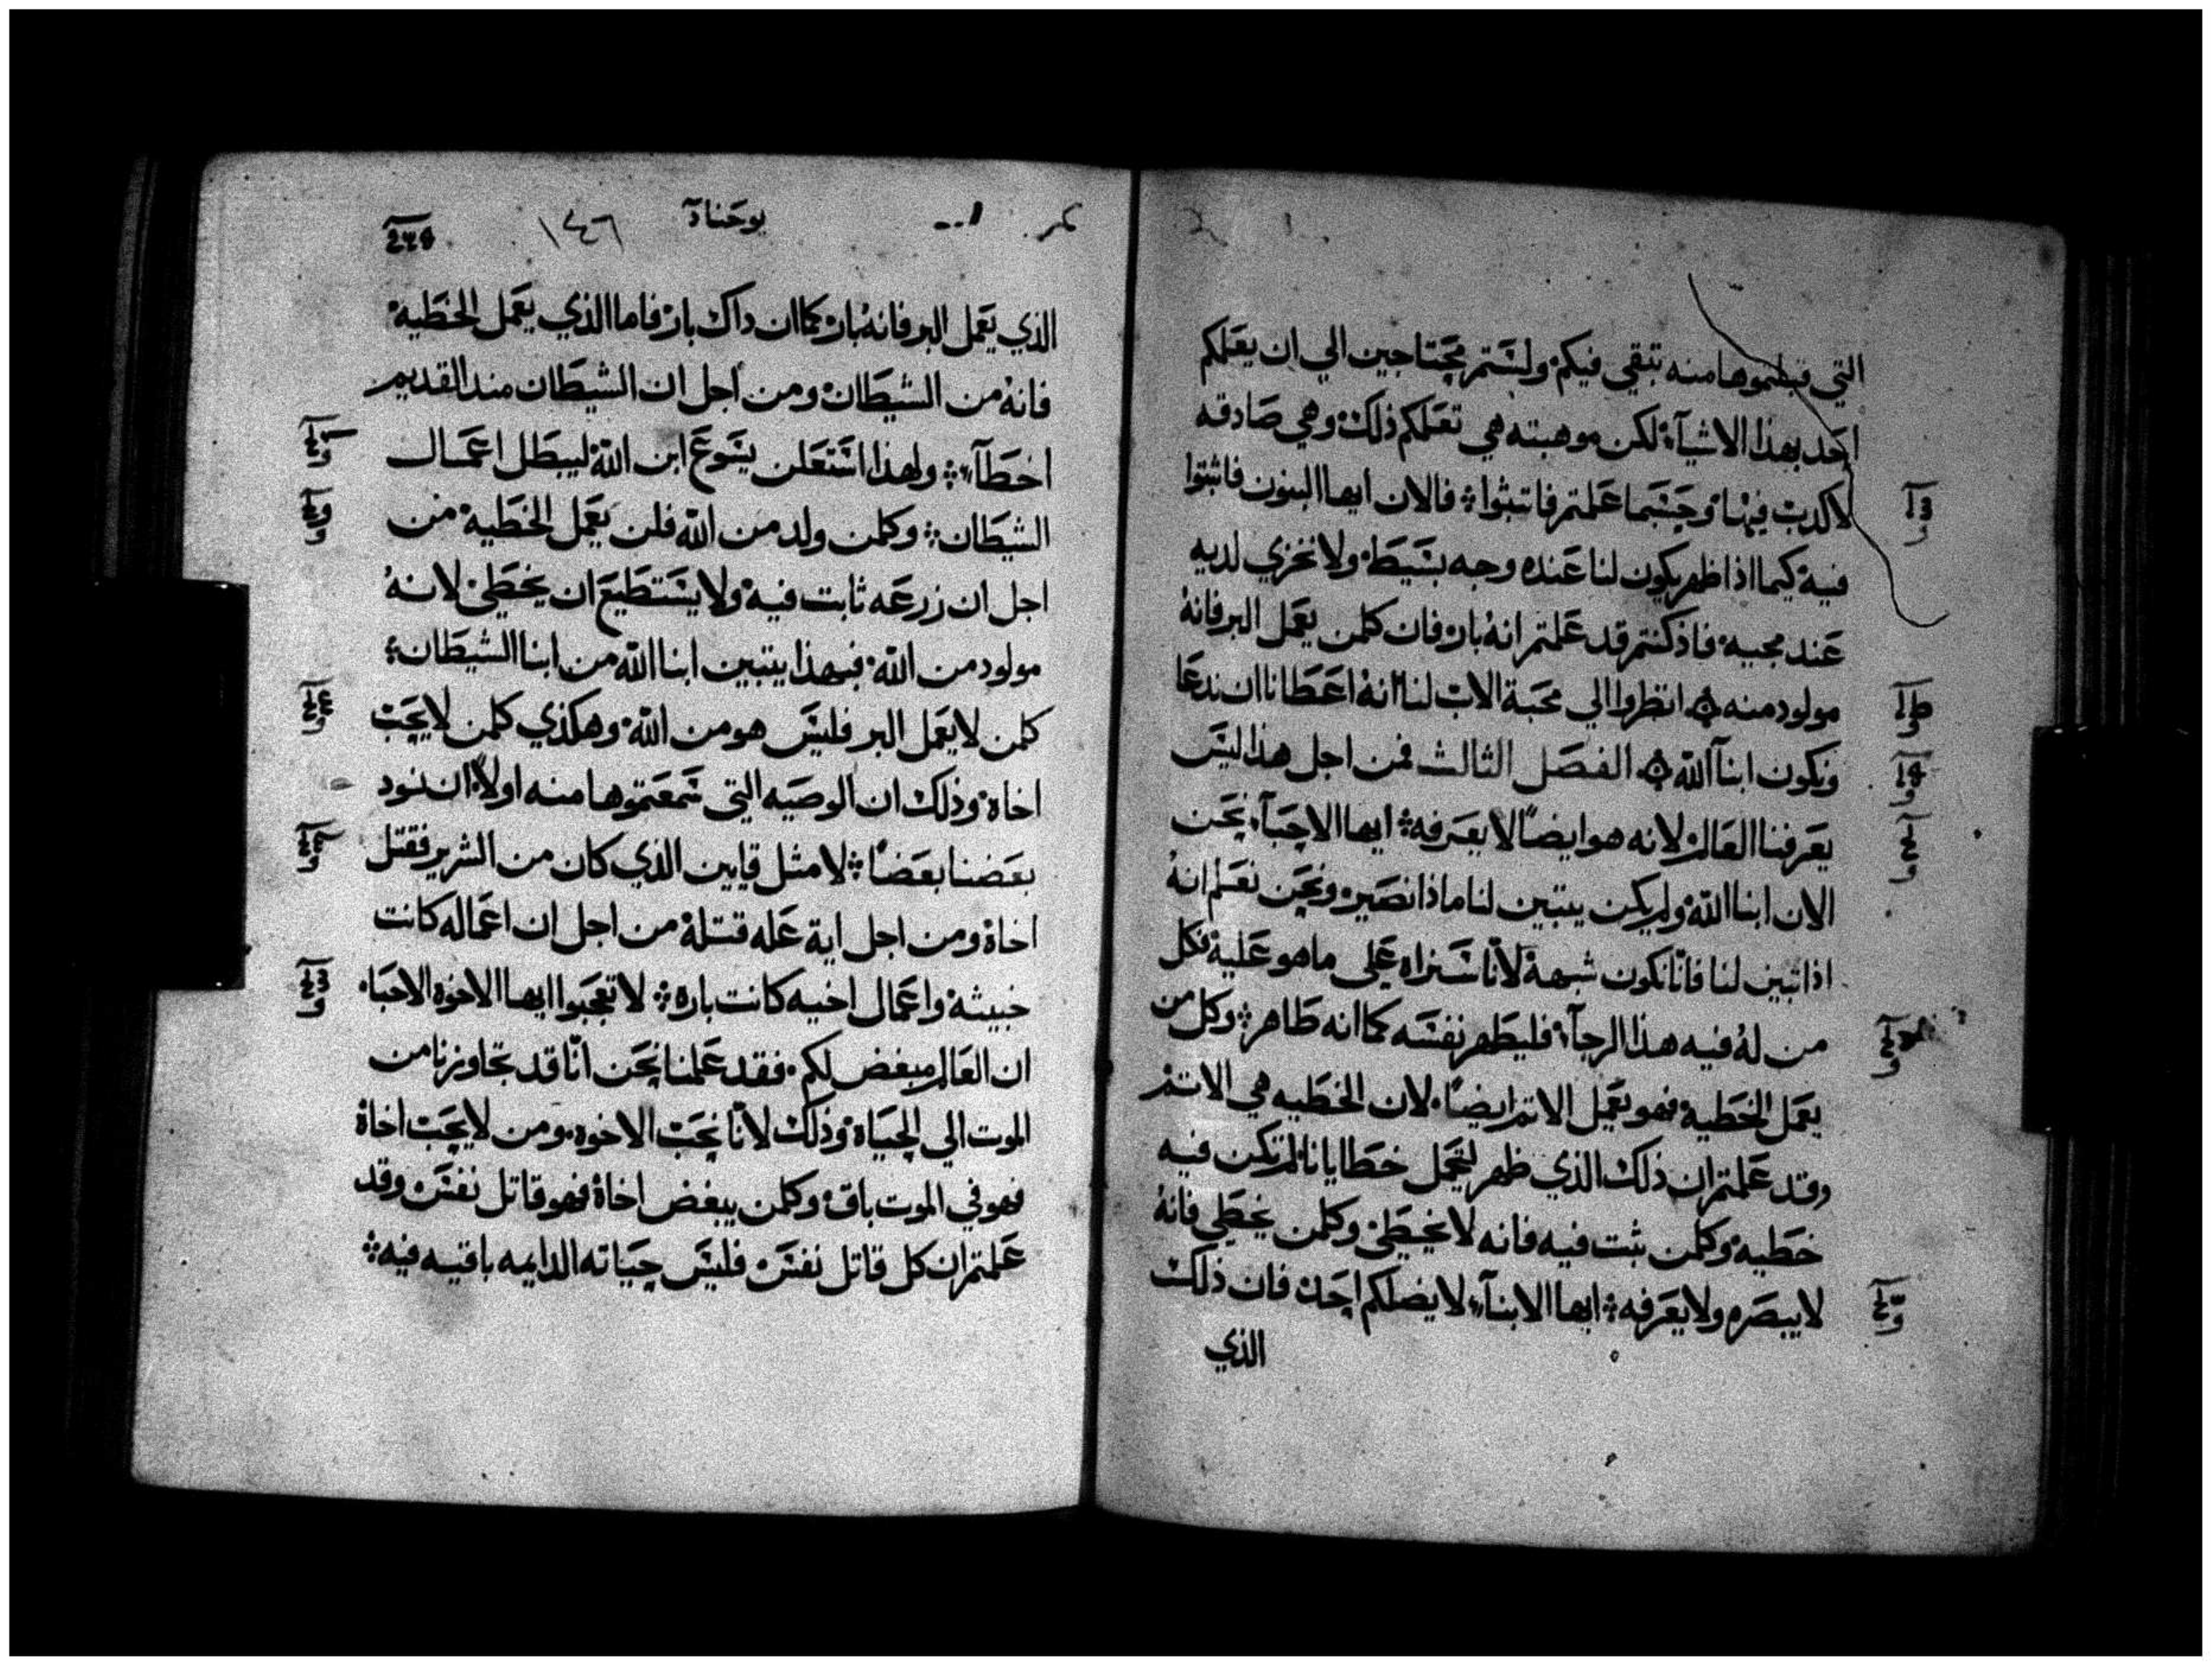 التي قبلتموها منه تبقي فيكم ولستم محتاجين الي ان يعلمكم
احد بهذا الاشيآء لكن موهبته هي تعلمكم ذلك وهي صادقه
لا كدب فيها وحسبما علمتم فاتبثوا فالان ايها البنون فاثبتوا
فيه كيما اذا ظهر يكون لنا عنده وجه بسيط ولا نخزي لديه
عند مجيه فاذ كنتم قد علمتم انه بار فان كلمن يعمل البر فانه
مولود منه انظروا الي محبة الاب لنا انه اعطانا ان ندعا
ونكون ابنآ الله الفصل الثالث فمن اجل هذا ليس
يعرفنا العالم لانه هو ايضاً لا يعرفه ايها الاحبآء نحن
الان ابنا الله ولم يكن يتبين لنا ماذا نصير ونحن نعلم انه
اذا تبين لنا فانّا نكون شبهه لانّا سنراه علي ما هو عليه فكل
من له فيه هذا الرجآء فليطهر نفسه كما انه طاهر وكل من
يعمل الخطية فهو يعمل الاثم ايضاً لان الخطيه هي الاثم
وقد علمتم ان ذلك الذي ظهر ليحمل خطايانا لم تكن فيه
خطيه وكلمن ثبت فيه فانه لا يخطئ وكلمن يخطي فانه
لا يبصره ولا يعرفه ايها الابنآء لا يضلكم احد فان ذلك
الذي
يوحنا آ
١٤٦
الذي يعمل البر فانه بار كما ان داك بار فاما الذي يعمل الخطية
فانه من الشيطان ومن اجل ان الشيطان مند القديم
اخطآء ولهذا استعلن يسوع ابن الله ليبطل اعمال
الشيطان وكلمن ولد من الله فلن يعمل الخطية من
اجل ان زرعه ثابت فيه ولا يستطيع ان يخطئ لانه
مولود من الله فبهذا يتبين ابنا الله من ابنا الشيطان
كلمن لا يعمل البر فليس هو من الله وهكذي كلمن لا يحب
اخاه وذلك ان الوصيه التي سمعتموها منه اولاً ان نود
بعضنا بعضاً لا مثل قايين الذي كان من الشرير فقتل
اخاه ومن اجل اية عله قتله من اجل ان اعماله كانت
خبيثه واعمال اخيه كانت باره لا تعجبوا ايها الاخوه الاحباء
ان العالم مبغض لكم فقد علمنا نحن انّا قد تجاوزنا من
الموت الي الحياة وذلك لانّا نحب الاخوه ومن لا يحب اخاه
فهو في الموت باق وكلمن يبغض اخاه فهو قاتل نفس وقد
علمتم ان كل قاتل نفس فليس حياته الدايمه باقيه فيه